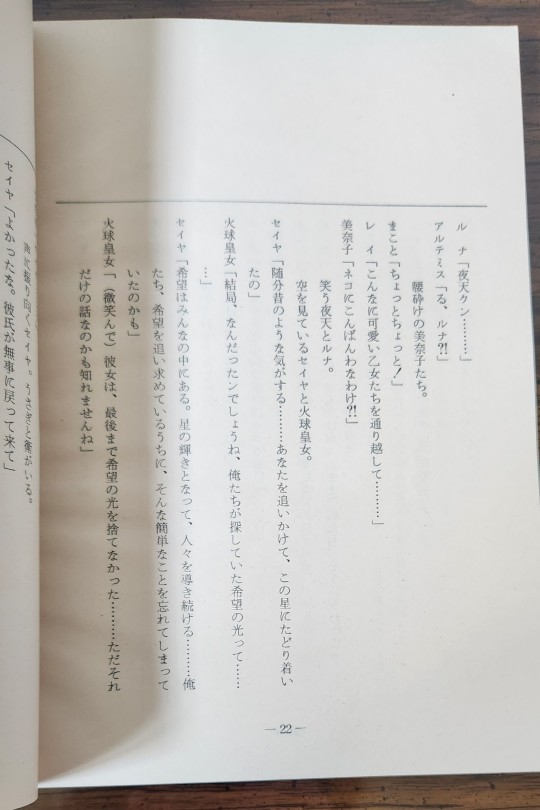 ル ナ「夜天クン………」
アルテミス「る、ルナ?!」
腰砕けの美奈子たち。
まこと「ちょっとちょっと!」
レ イ「こんなに可愛い乙女たちを通り越して………」
美奈子「ネコにこんばんわなわけ?!」
笑う夜天とルナ。
空を見ているセイヤと火球皇女。
セイヤ「随分昔のような気がする………あなたを追いかけて、この星にたどり着い
たの」
火球皇女「結局、なんだったンでしょうね、俺たちが探していた希望の光って……
…」
セイヤ「希望はみんなの中にある。星の輝きとなって、人々を導き続ける………俺
たち、希望を追い求めているうちに、そんな簡単なことを忘れてしまって
いたのかも」
火球皇女「(微笑んで)彼女は、最後まで希望の光を捨てなかった………ただそれ
だけの話なのかも知れませんね」
―22―
に振り向くセイヤ。うさぎと衛がいる。
セイヤ「よかったな。彼氏が無事に戻って来て」